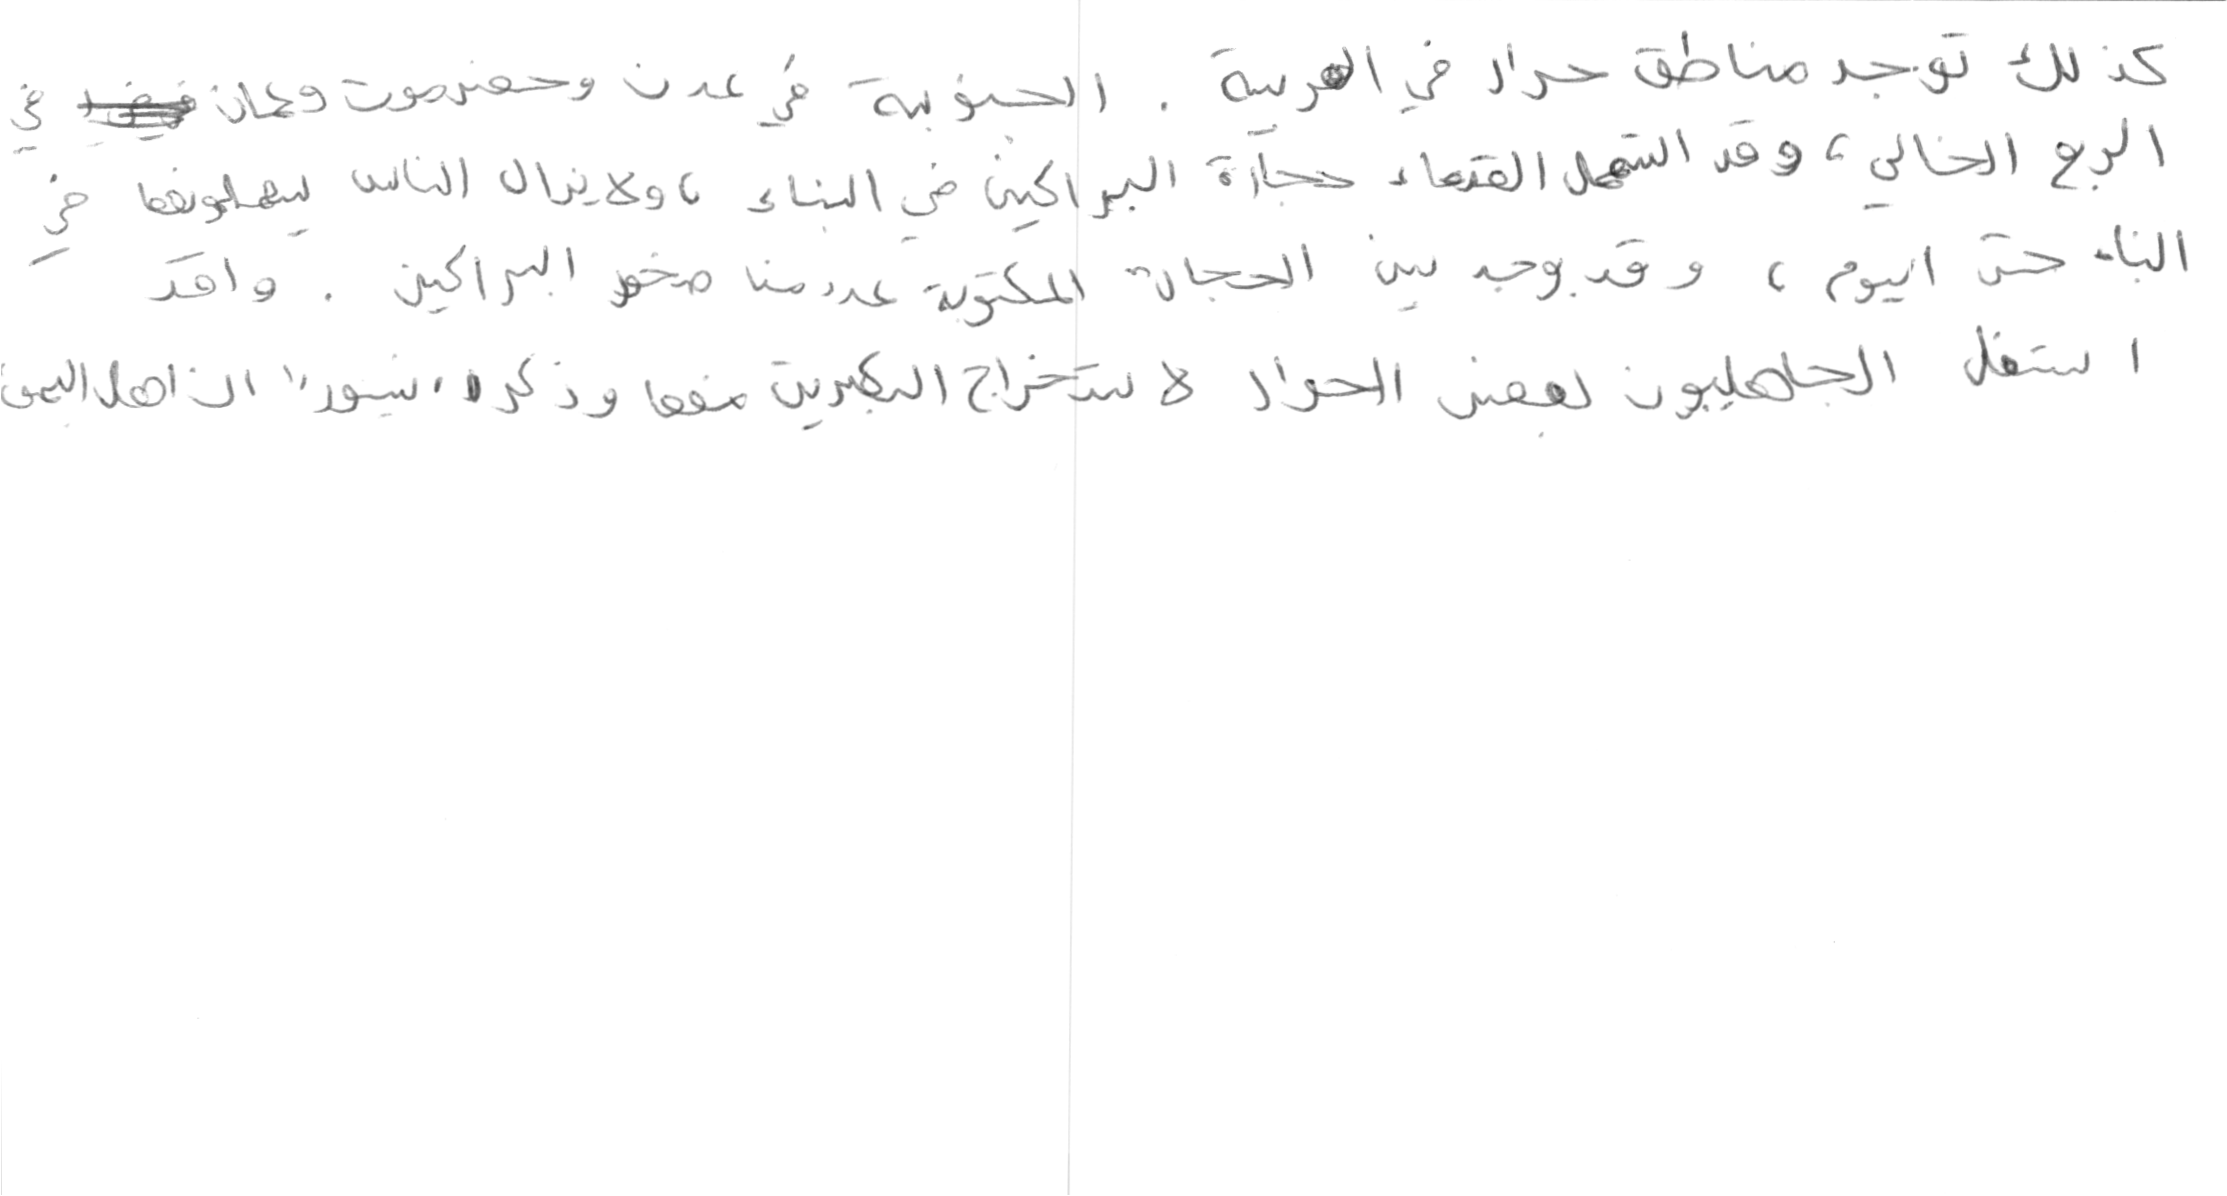 كذلك توجد مناطق حرار في العربية . الجنوبية في عدن وحضرموت وعمان في
الربع الخالي ، وقد استعمل القدماء حجارة البراكين في البناء ، ولا يزال الناس يستعملونها في
البناء حتى اليوم ، وقد وجد بين الحجارة المكتوبة عدد منا صخور البراكين . واقد
استغل الجاهليون بعض الحرار لاستخراج الكبريت منها وذكر "نيبور" ان اهل اليمن